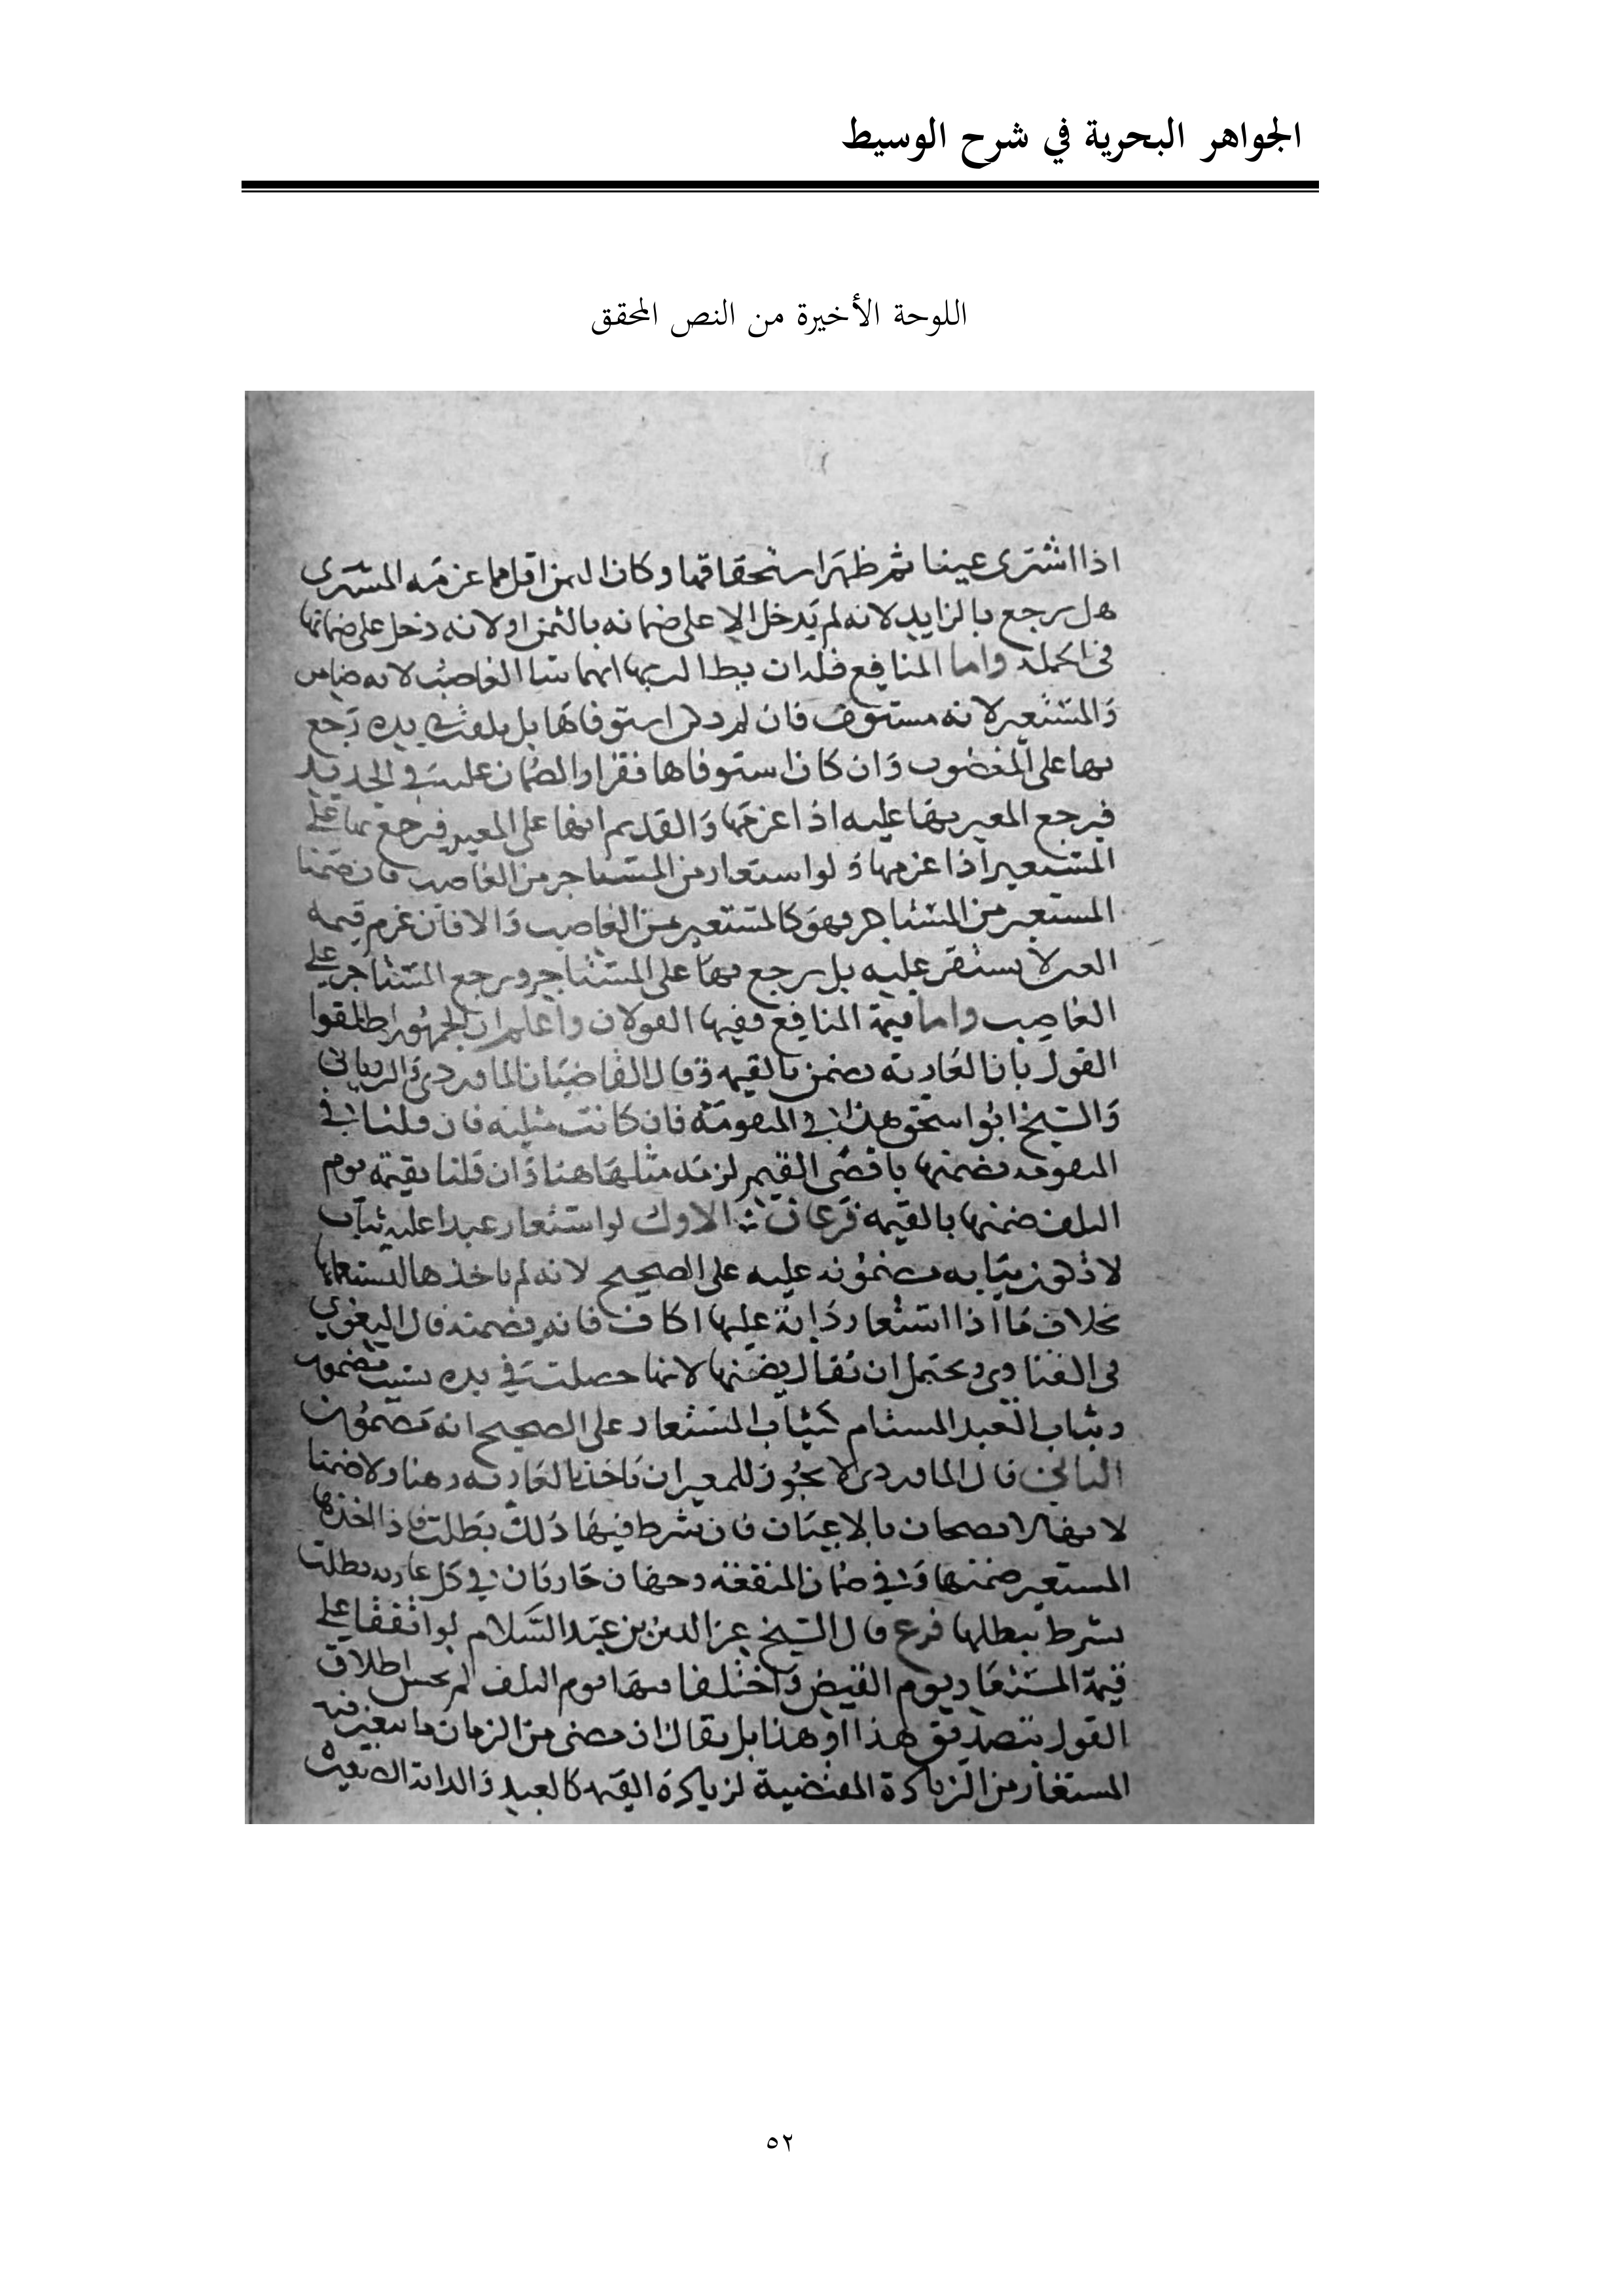 الجواهر البحرية في شرح الوسيط
اللوحة الأخيرة من النص المحقق
اذا اشترى عينا ثم ظهر استحقاقها وكان الثمن اقل مما غرمه المشترى
هل يرجع بالزايد لانه لم يدخل الا على ضمانه بالثمن او لانه دخل على ضمانها
فى الجملة واما المنافع فله ان يطالب بها ايهما شا الغاصب لانه ضامن
والمستعير لانه مستوف فان لم يكن استوفاها بل تلفت في يده رجع
بها على وان كان استوفاها فقرار الضمان عليه في الجديد
فيرجع المعير بها عليه اذا غرمها والقديم انها على المعير فيرجع بها على
المستعير اذا غرمها ولو استعار من المستاجر من الغاصب فان ضمنا
المستعير من المستاجر فهو كالمستعير من الغاصب والا فان غرم قيمة
العين لا يستقر عليه بل يرجع بها على المستاجر ويرجع المستاجر على
الغاصب واما قيمة المنافع ففيها القولان واعلم ان الجمهور اطلقوا
القول بان العارية تضمن بالقيمة وقال القاضيان الماوردى والرويانى
والشيخ ابو اسحق هذا في المتقومة فان كانت مثلية فان قلنا في
المتقومة نضمنها باقصى القيم لزمه مثلها هنا وان قلنا بقيمة يوم
التلف ضمنها بالقيمة فرعان الاول لو استعار عبدا عليه ثياب
لا تكون ثيابه مضمونة عليه على الصحيح لانه لم ياخذها ليستعملها
بخلاف ما اذا استعار دابة عليها اكاف فانه يضمنه قال البغوي
فى الفتاوى ويحتمل ان يقال يضمنها لانها حصلت في يده بسبب مضمون
وثياب العبد المستام كثياب المستعار على الصحيح انه مضمون
الثاني قال الماوردى لا يجوز للمعير ان ياخذ بالعارية رهنا ولا ضمنا
لانهما لا يصحان بالاعيان فان شرط فيها ذلك بطلت فاذا اخذها
المستعير ضمنها وفي ضمان المنفعة وجهان جاريان في كل عارية بطلت
بشرط يبطلها فرع قال الشيخ عز الدين بن عبد السلام لو اتفقا على
قيمة المستعار يوم القبض واختلفا فيها يوم التلف لم يحسن اطلاق
القول بتصديق هذا او هذا بل يقال ان مضى من الزمان ما يتغير فيه
المستعار من الزيادة المقتضية لزيادة القيمة كالعبد والدابة
٥٢